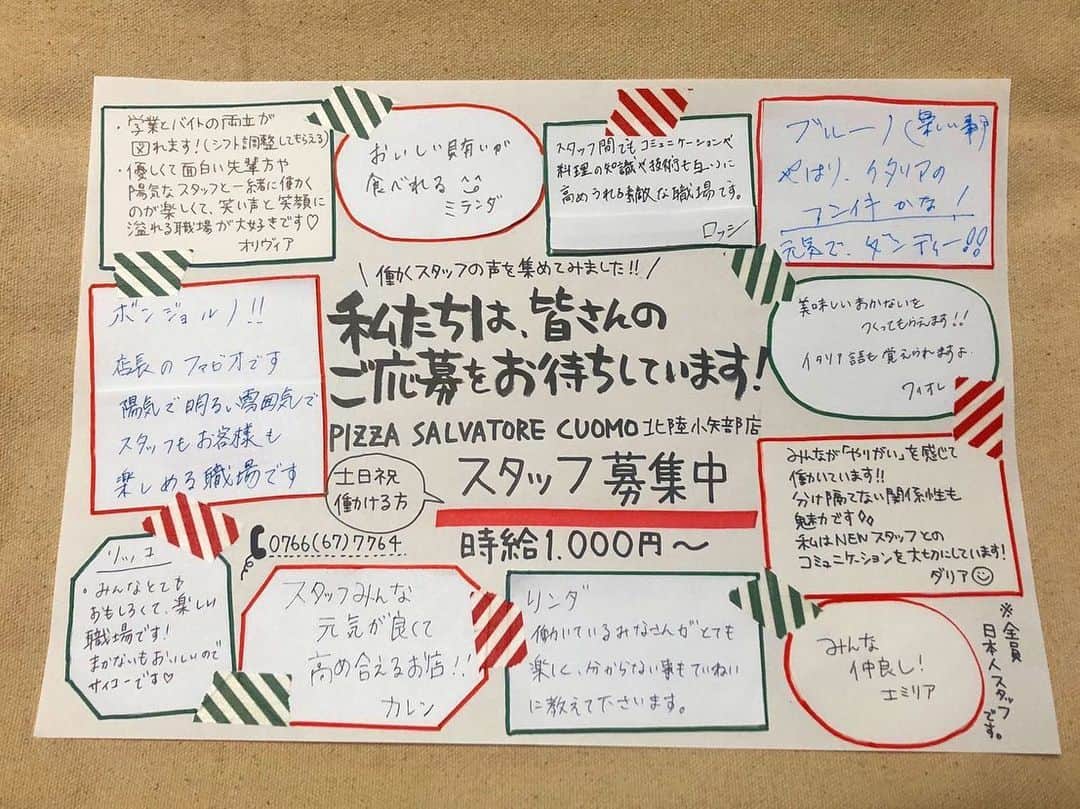 ・学業とバイトの両立が
図れます!(シフト調整してもらえる)
・優しくて面白い先輩方や
陽気なスタッフと一緒に働く
のが楽しくて、笑い声と笑顔に
溢れる職場が大好きです♡
オリヴィア
おいしい賄いが
食べれる
ミランダ
スタッフ間でもコミュニケーションや
料理の知識や技術も互いに
高めうれる素敵な職場です。
ロッシ
ブルーノ
やはり、イタリアの
フンイキかな!
元気で、ダンディー!!
\働くスタッフの声を集めてみました!!/
私たちは、皆さんの
ご応募をお待ちしています!
PIZZA SALVATORE CUOMO 北陸小矢部店
土日祝
働ける方
スタッフ募集中
0766(67)7764
時給1.000円〜
ボンジョルノ!!
店長のファビオです
陽気で明るい雰囲気で
スタッフもお客様も
楽しめる職場です
美味しいまかないを
つくってもらえます!!
イタリア語も覚えられますよ
フィオレ
みんなが「やりがい」を感じて
働いています!!
分け隔てない関係性も
魅力です◇◇
私はNEWスタッフとの
コミュニケーションを大切にしています!
ダリア
リッコ
・みんなとても
おもしろくて、楽しい
職場です!
まかないもおいしいので
サイコーです♡
スタッフみんな
元気が良くて
高め合えるお店!!
カレン
リンダ
働いているみなさんがとても
楽しく、分からない事もていねい
に教えて下さいます。
みんな
仲良し!
エミリア
※全員
日本人スタッフ
です。